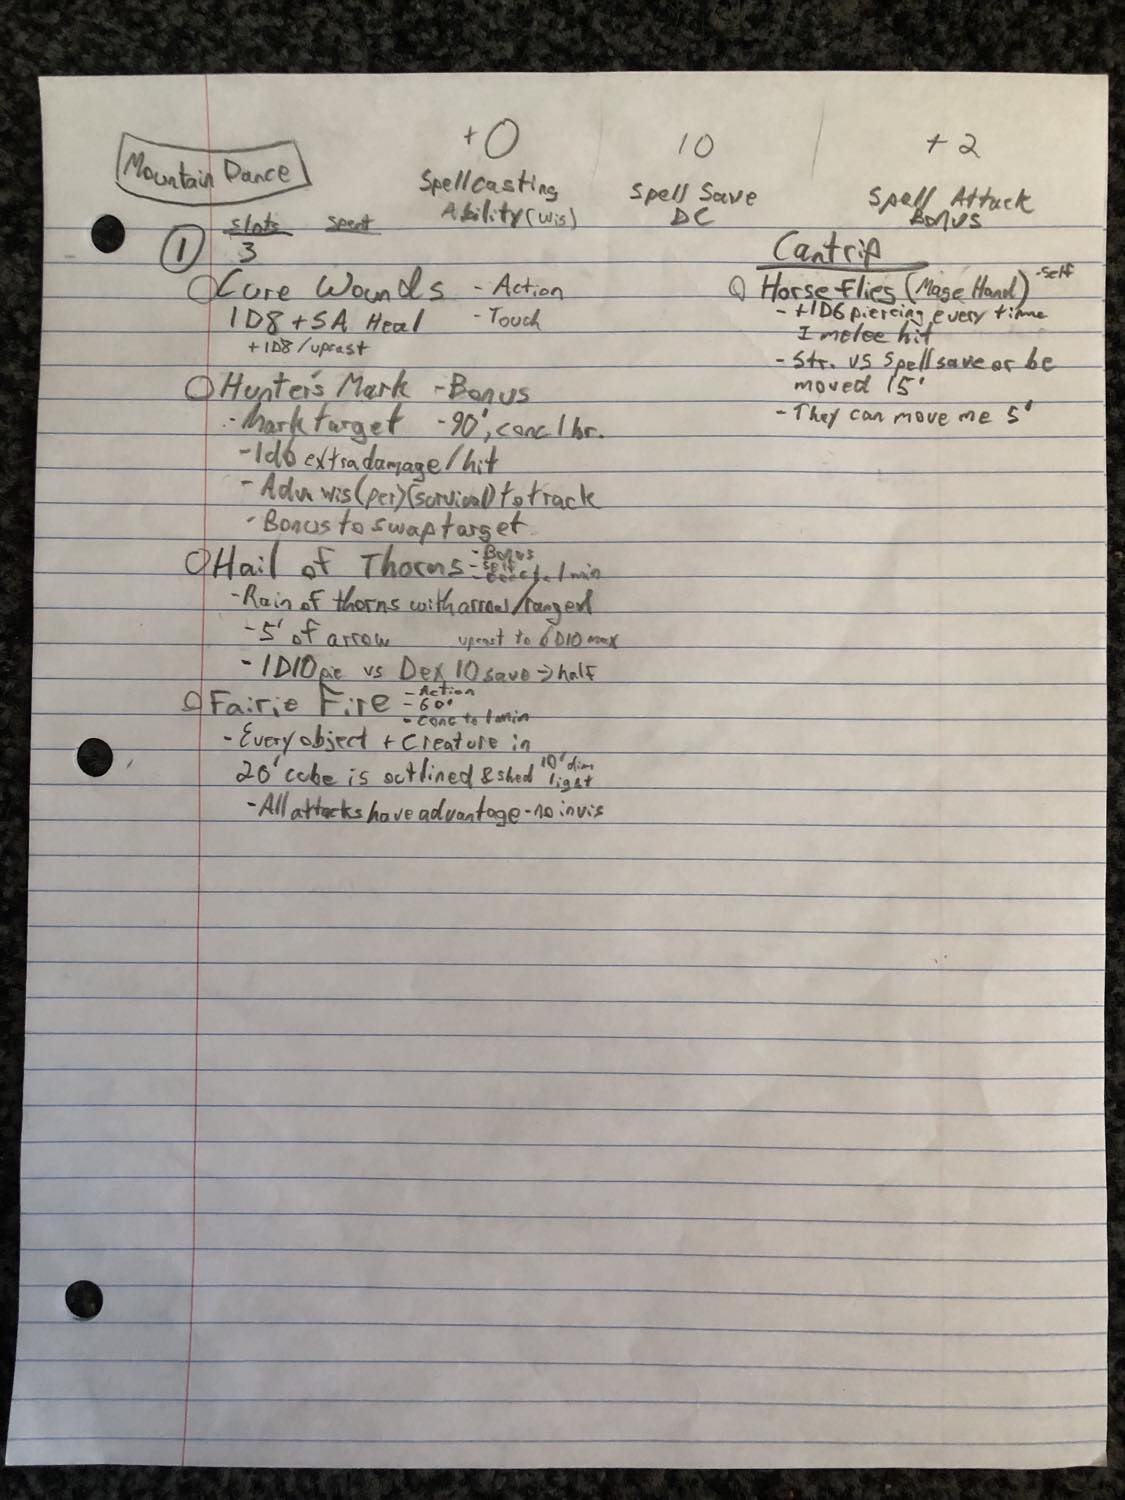 Mountain Dance
+0
Spellcasting
Ability (Wis)
10
Spell Save
DC
+2
Spell Attack
Bonus
① Slots Spent
3
Cure Wounds - Action
1D8 + SA Heal - Touch
+1D8/upcast
Hunter's Mark - Bonus
- Mark target - 90', conc 1 hr.
- 1d6 extra damage/hit
- Adv wis (per)(survival) to track
- Bonus to swap target
Hail of Thorns - Bonus
- Self
- Conc to 1 min
- Rain of thorns with arrow/ranged
- 5' of arrow upcast to 6D10 max
- 1D10 pie vs Dex 10 save → half
Fairie Fire - Action
- 60'
- Conc to 1 min
- Every object + Creature in
20' cube is outlined & shed 10' dim light
- All attacks have advantage - no invis
Cantrip
Horse flies (Mage Hand) - Self
- +1D6 piercing every time
I melee hit
- Str. VS Spell save or be
moved 15'
- They can move me 5'